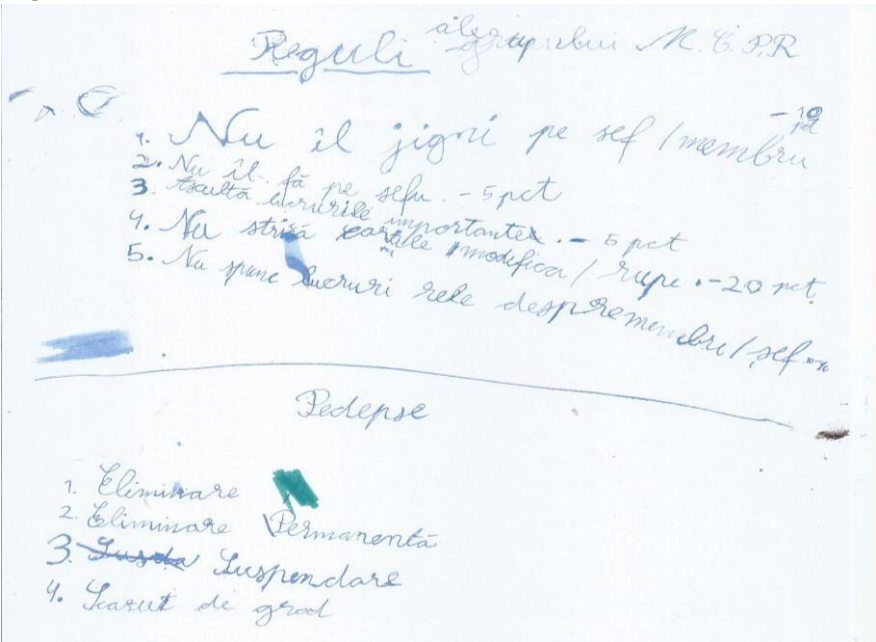 Reguli ale grupului M.C.P.R
1. Nu îl jigni pe sef / membru -10 pct
2. Nu îl fă pe sefu. - 5 pct
3. Ascultă lucrurile importante. - 5 pct
4. Nu strica / modifica / rupe. -20 pct.
5. Nu spune lucruri rele despre membri / sef
Pedepse
1. Eliminare
2. Eliminare Permanentă
3. Suspendare
4. Scazut de grad